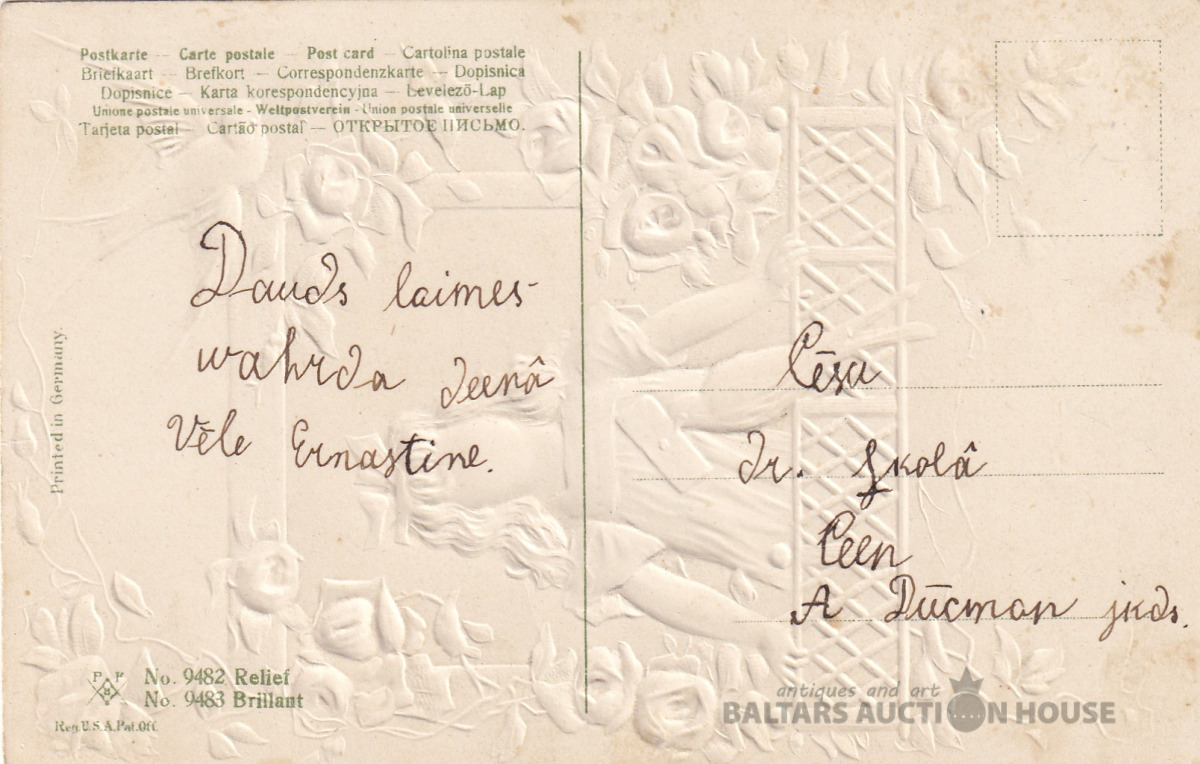 Postkarte — Carte postale — Post card — Cartolina postale
Briefkaart — Brefkort — Correspondenzkarte — Dopisnica
Dopisnice — Karta korespondencyjna — Levelező-Lap
Unione postale universale - Weltpostverein - Union postale universelle
Tarjeta postal — Cartão postal — ОТКРЫТОЕ ПИСЬМО.
Dauds laimes
wahrda deenâ
Vēle Ernastine.
Printed in Germany.
P P
B
No. 9482 Relief
No. 9483 Brillant
Reg. U.S.A. Pat. Off.
Cēsu
dr. skolâ
Ceen
A Dūcman jkds.
antiques and art
BALTARS AUCTION HOUSE